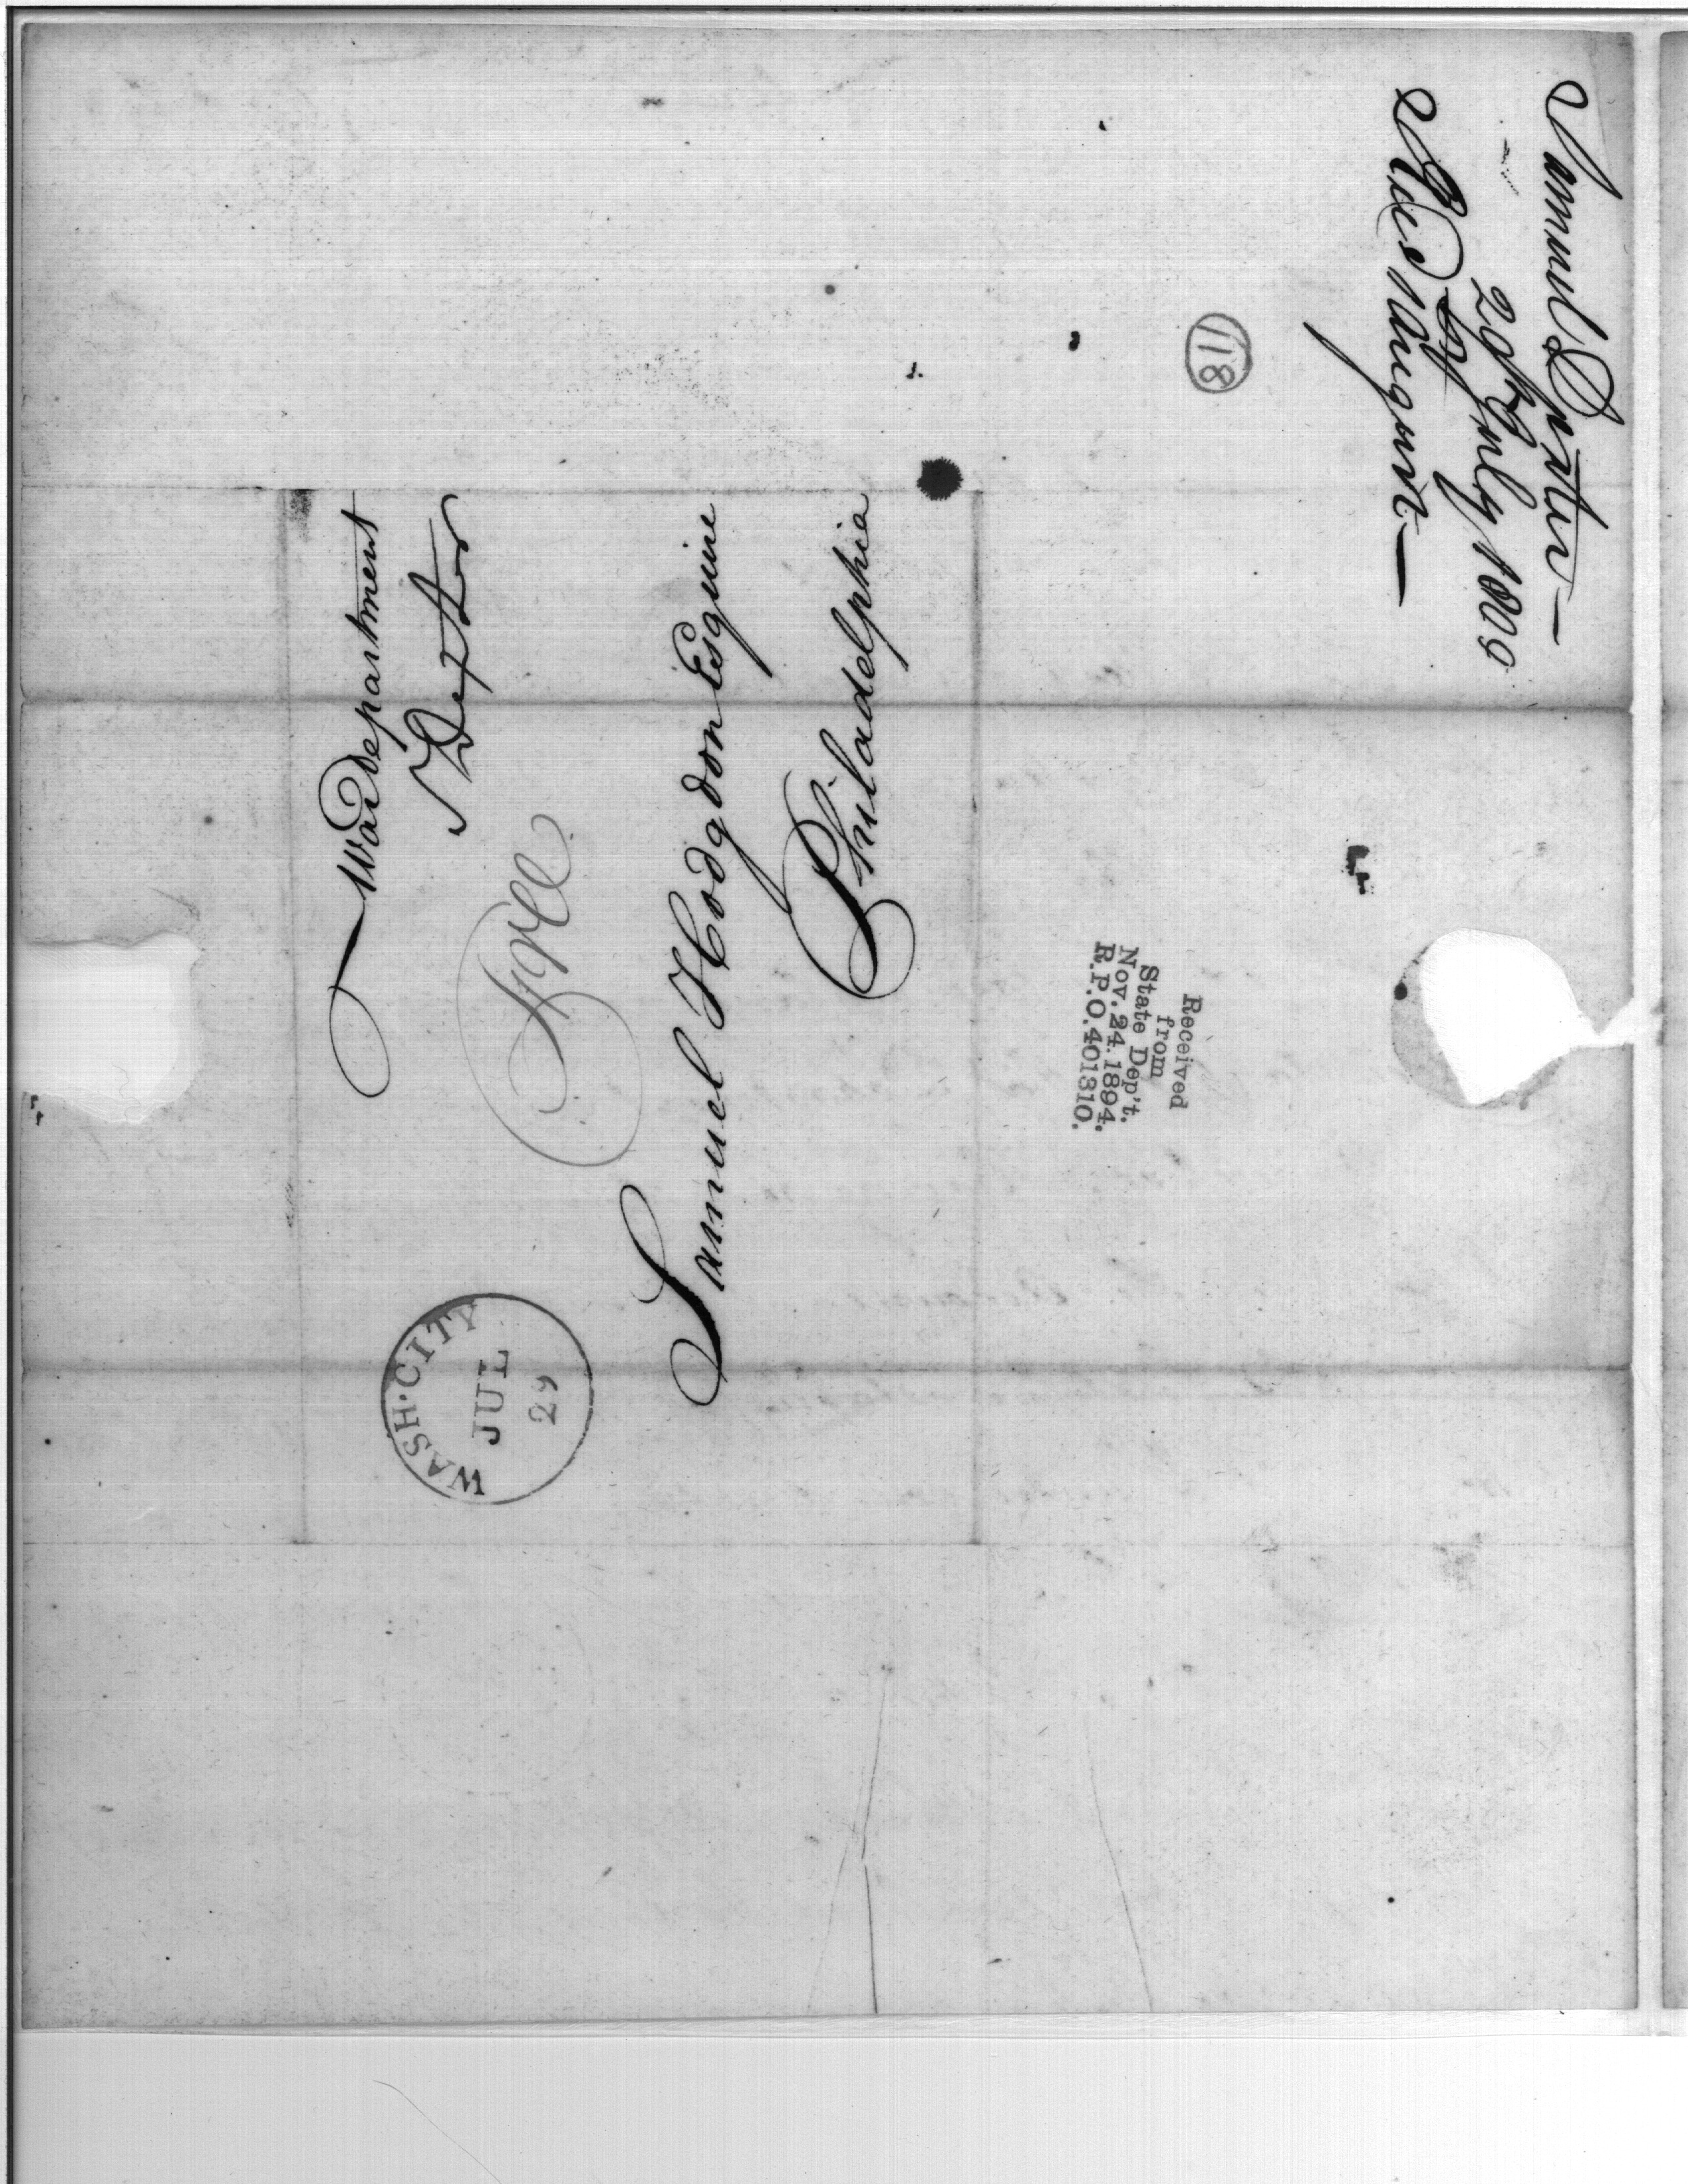 War Department
S Dexter
Free
Samuel Hodgdon Esquire
Philadelphia
WASH·CITY
JUL
29
Samuel Dexter—
July 1800
Recd
August—
118
Received
from
State Dep't.
Nov. 24. 1894.
R.P.O. 401310.